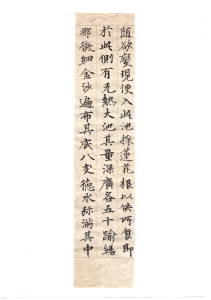 随欲變現便入此池採蓮花根以供所食即
於此側有无熱大池其量深廣各五十踰繕
那微細金沙遍布其底八支德水弥滿其中